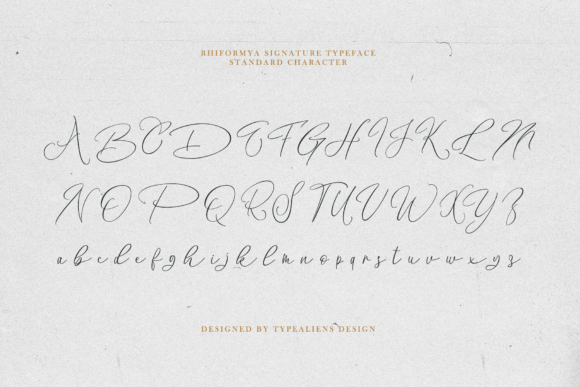 RHIFORMYA SIGNATURE TYPEFACE
STANDARD CHARACTER
A B C D E F G H I J K L M
N O P Q R S T U V W X Y Z
a b c d e f g h i j k l m n o p q r s t u v w x y z
DESIGNED BY TYPEALIENS DESIGN